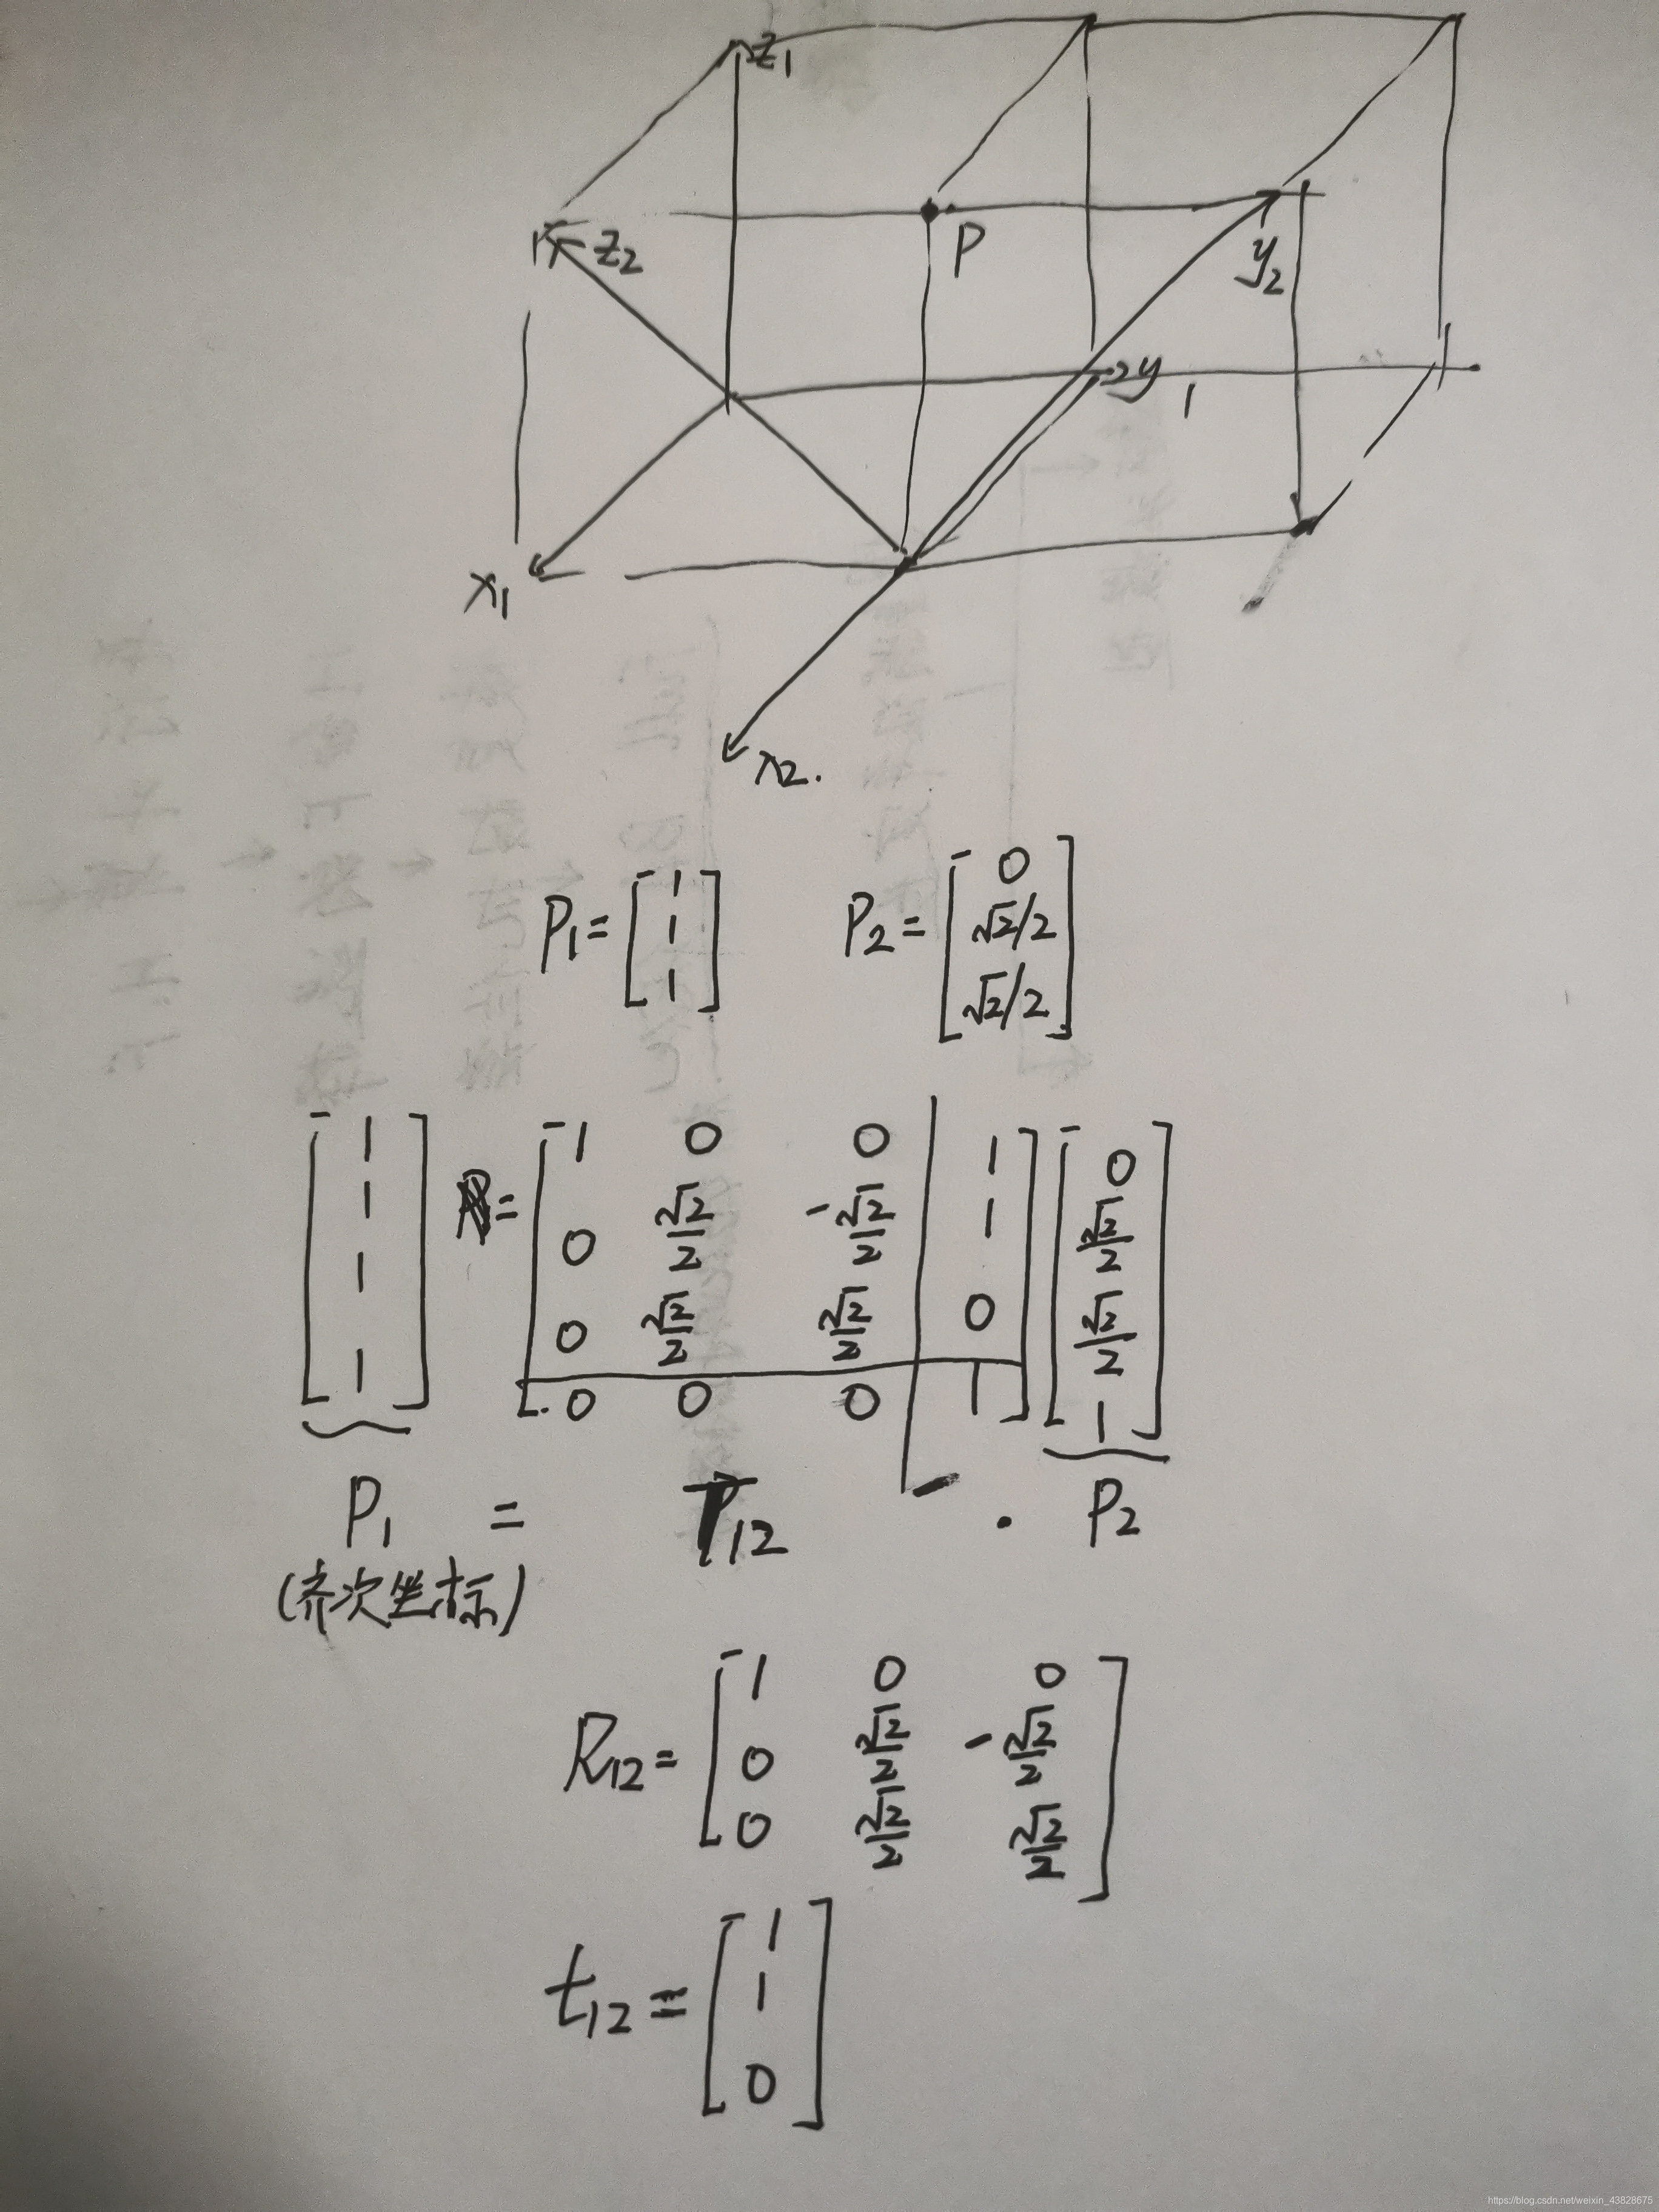 z₁
z₂
P
y₂
y₁
x₁
x₂.
P₁ = [1 1 1] P₂ = [0 √2/2 √2/2]
[1 = [1 0 0 | 1] [0
1 0 √2/2 -√2/2 | 1 √2/2
1 0 √2/2 √2/2 | 0 √2/2
1] [0 0 0 | 1] 1]
P₁ = T₁₂ · P₂
(齐次坐标)
R₁₂ = [1 0 0
0 √2/2 -√2/2
0 √2/2 √2/2]
t₁₂ = [1
1
0]
https://blog.csdn.net/weixin_43828675